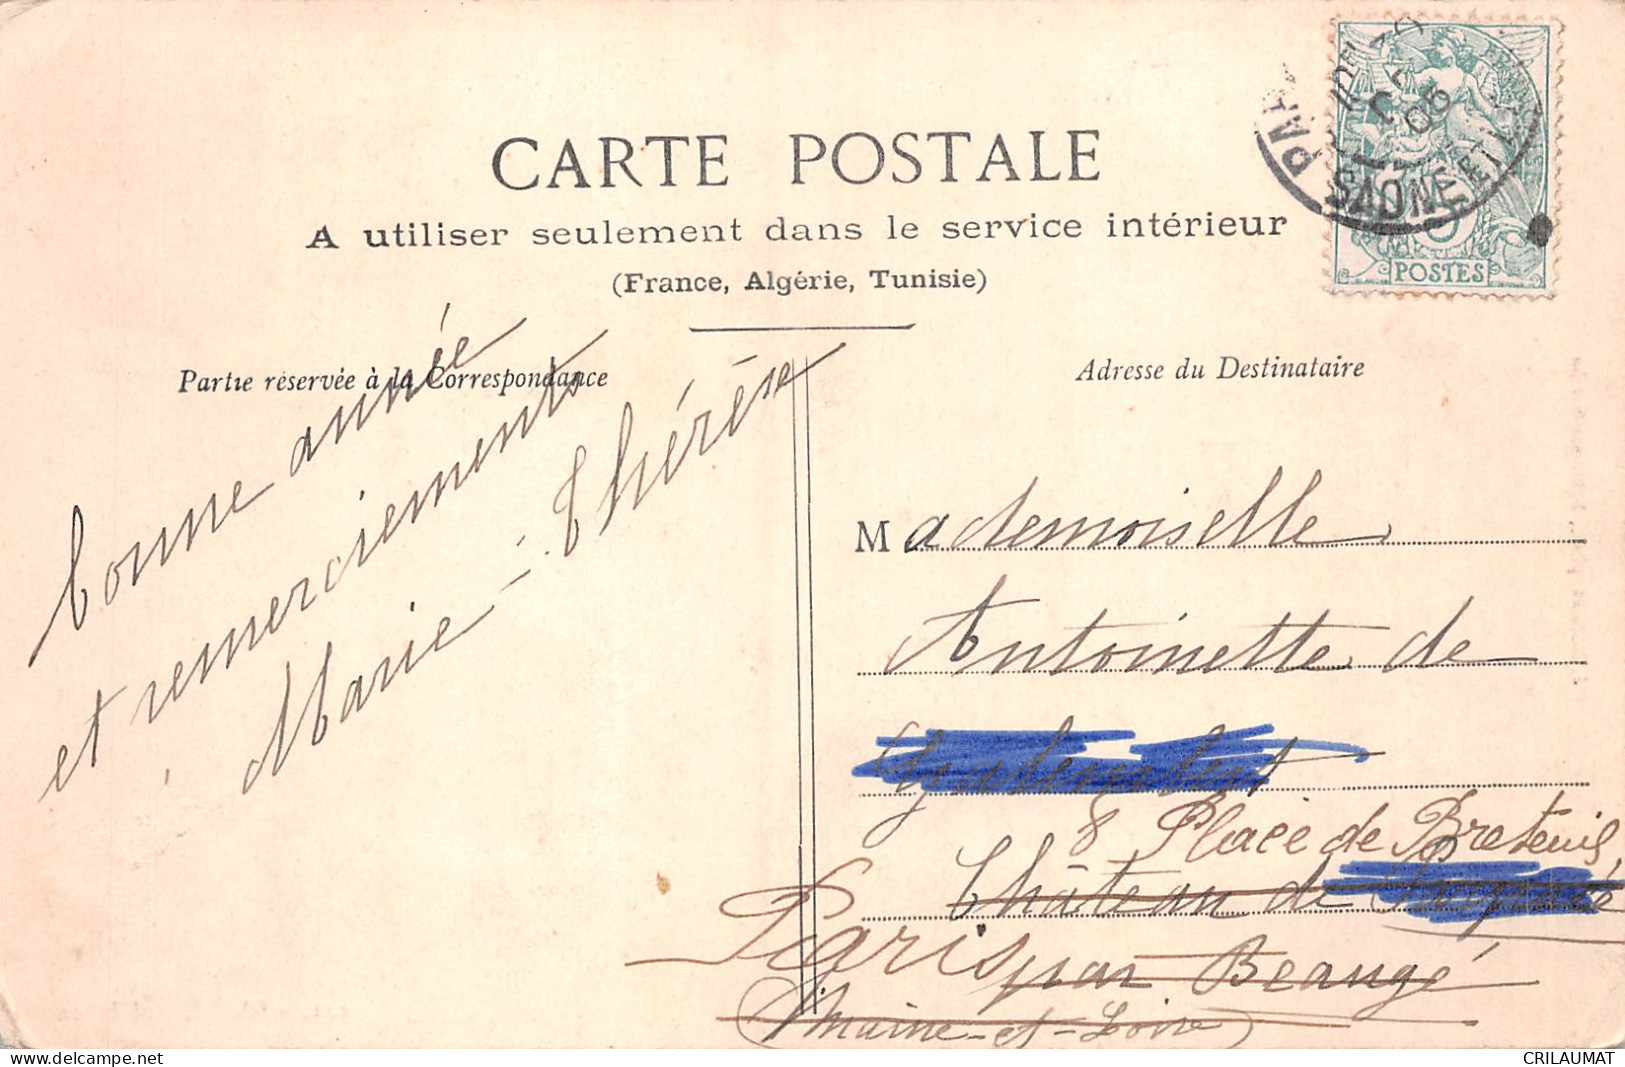 CARTE POSTALE
A utiliser seulement dans le service intérieur
(France, Algérie, Tunisie)
Partie réservée à la Correspondance
Adresse du Destinataire
bonne année
et remerciements
Marie-Thérèse
Mademoiselle
Antoinette de
8 Place de Breteuil,
Château de
Paris par Beaugé
(Maine-et-Loire)
PAR
SAONE ET L
05
POSTES
CRILAUMAT